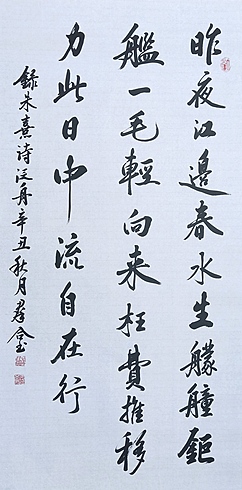 昨夜江邊春水生艨艟鉅
艦一毛輕向来枉費推移
力此日中流自在行
録朱熹诗泛舟辛丑秋月